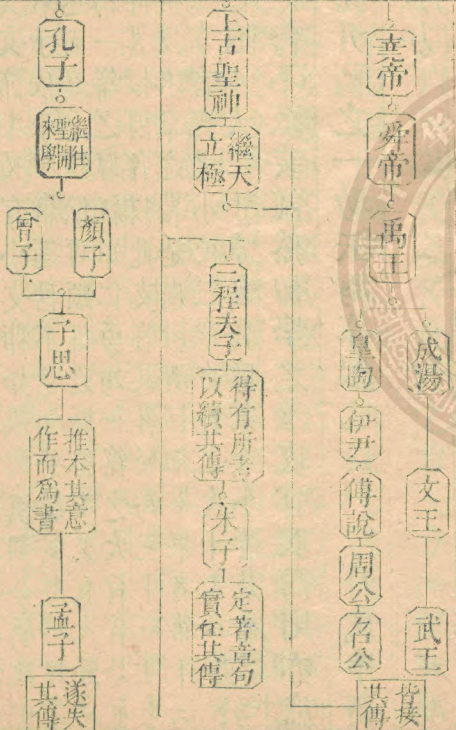 尭帝
舜帝
禹王
成湯
文王
武王
皐陶
伊尹
傅說
周公
召公
皆接
其傳
上古聖神
繼天
立極
二程夫子
得有所考
以續其傳
朱子
定著章句
實任其傳
孔子
繼往
聖開
來學
顏子
曾子
子思
推本其意
作而爲書
孟子
遂失
其傳